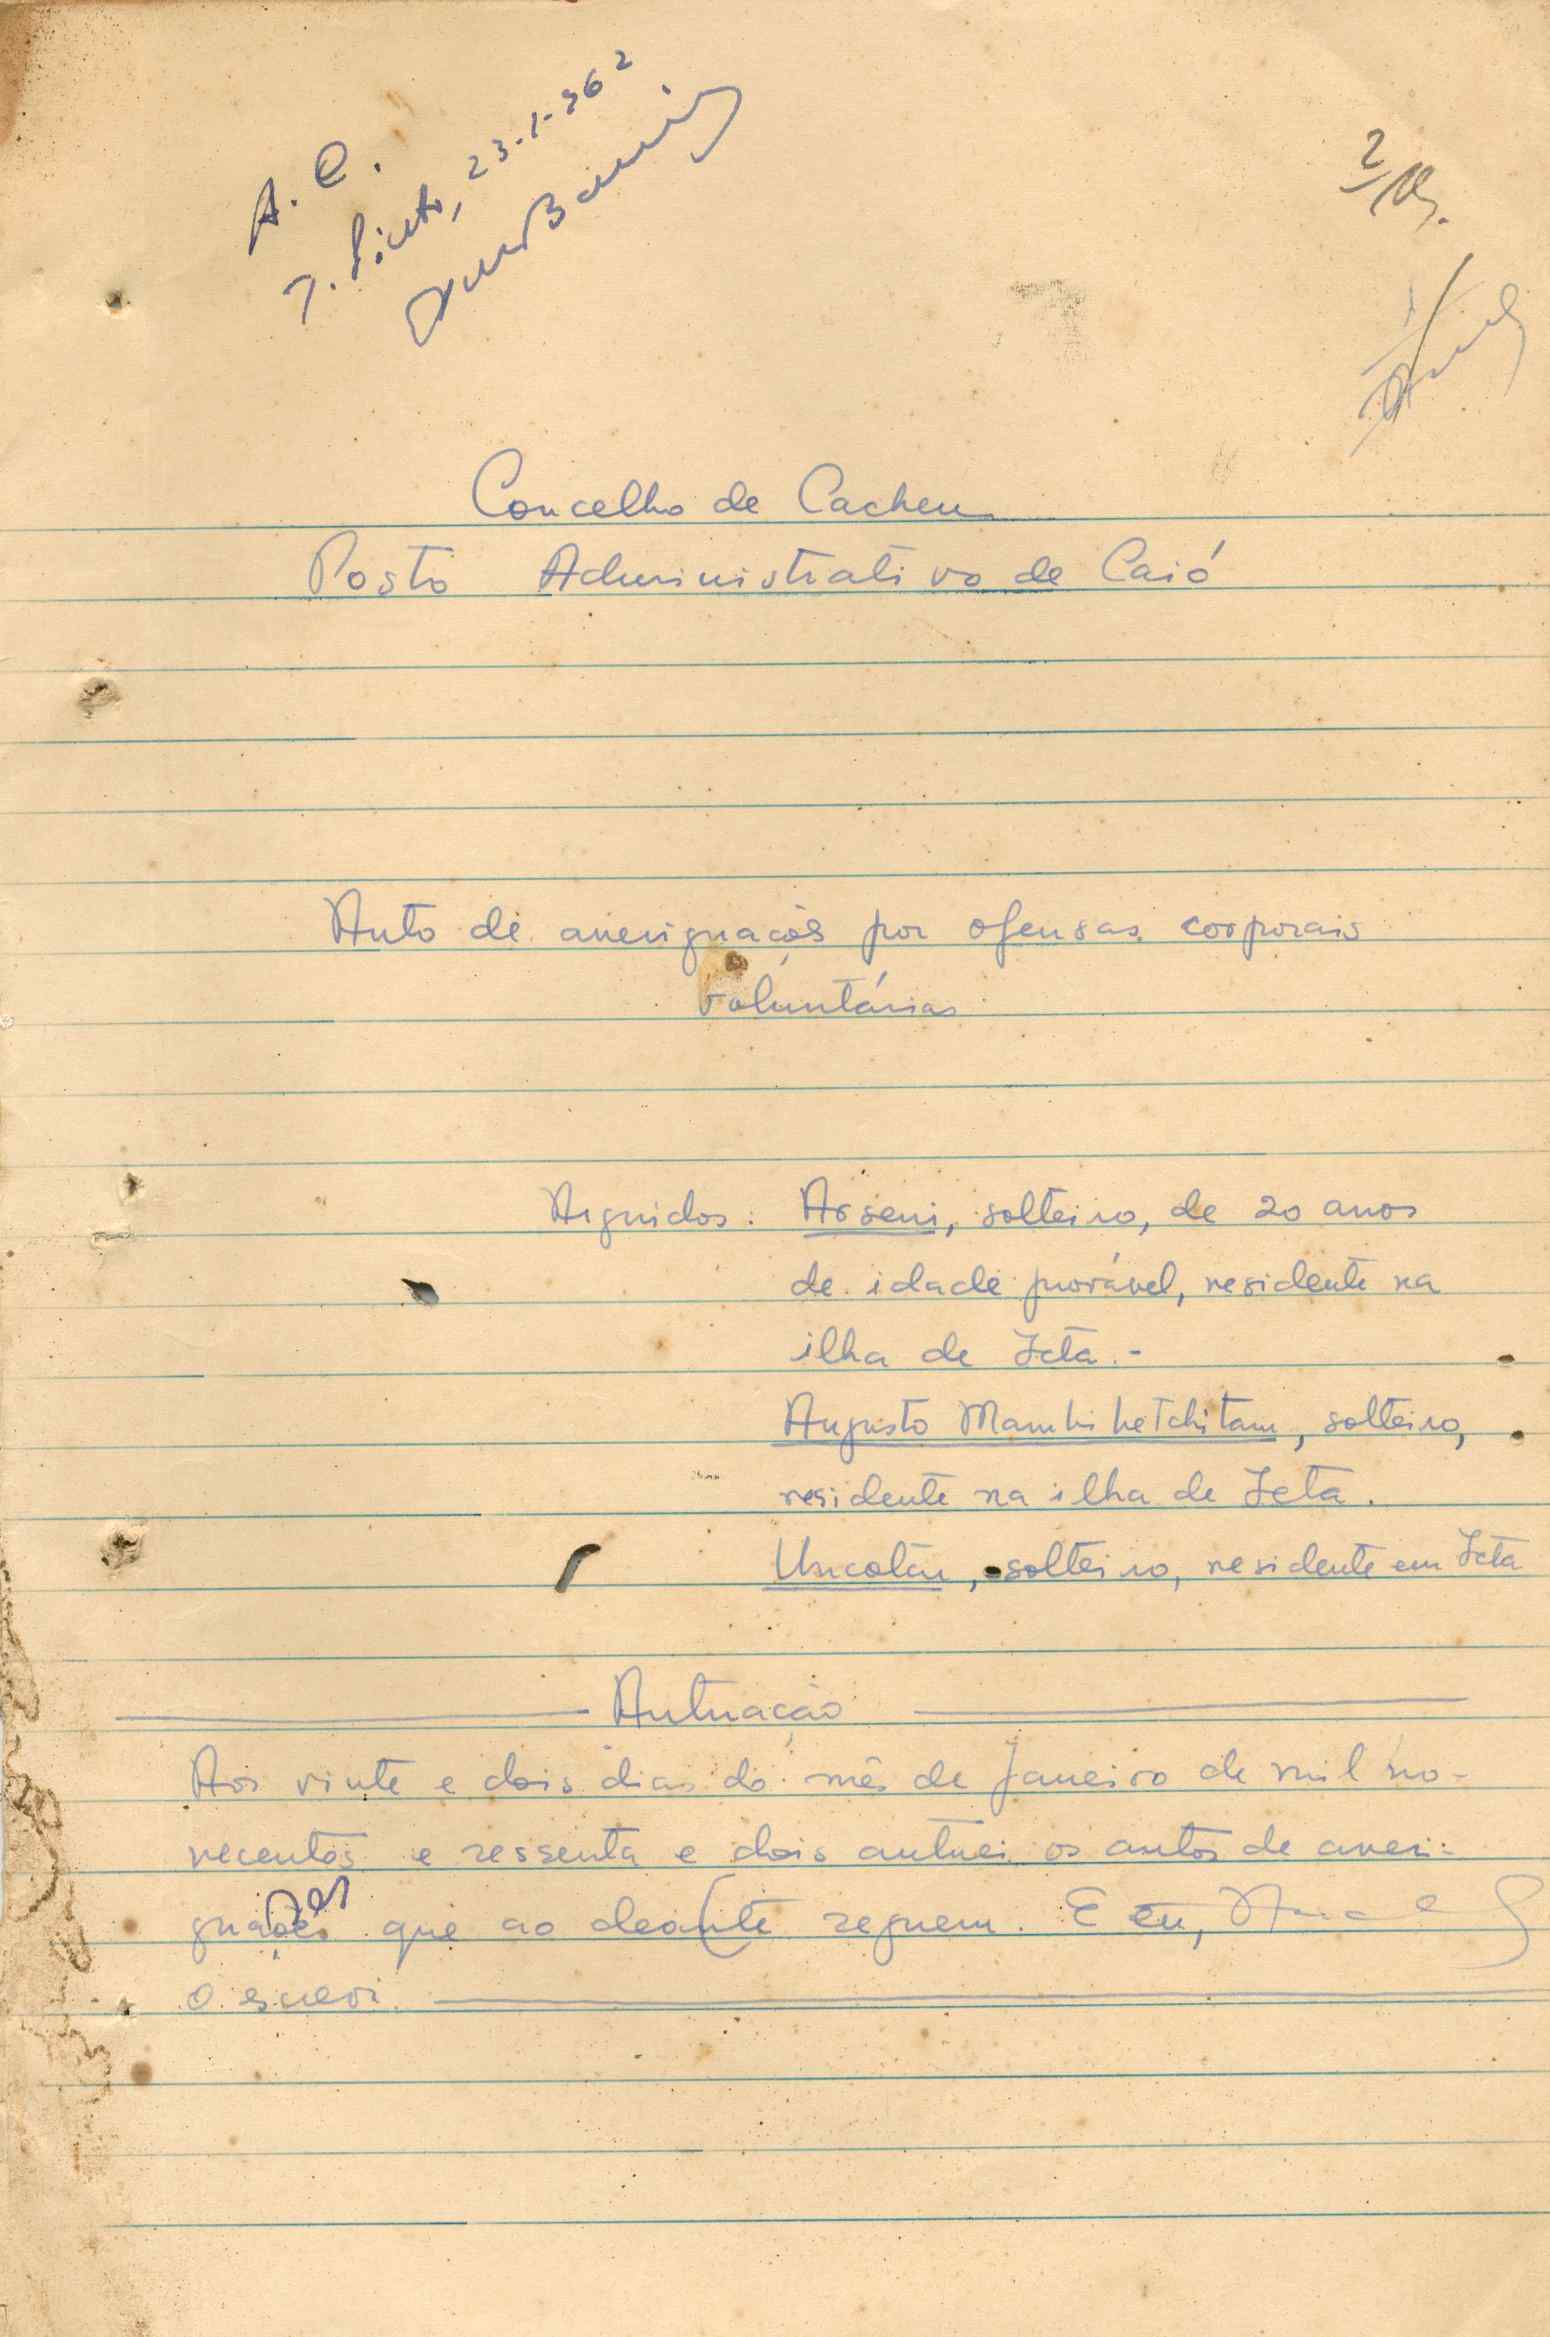 A. C.
T. Pinto, 23-1-962
2
Concelho de Cacheu
Posto Administrativo de Caió
Auto de averiguações por ofensas corporais
voluntárias
Arguidos: Arseni, solteiro, de 20 anos
de idade provável, residente na
ilha de Jeta.-
Augusto, solteiro,
residente na ilha de Jeta.
Uncotan, solteiro, residente em Jeta
Autuação
Aos vinte e dois dias do mês de Janeiro de mil no-
vecentos e sessenta e dois autuei os autos de averi-
guações que ao deante seguem. E eu,
o escrevi.